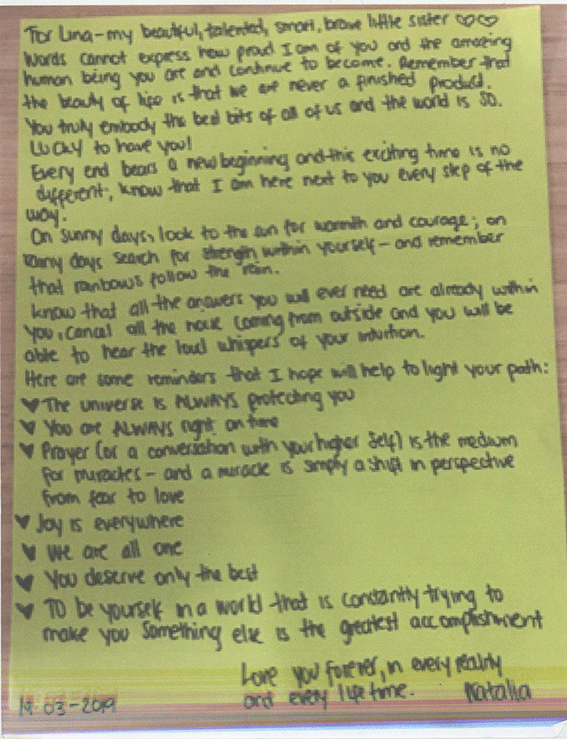 For Luna-my beautiful, talented, smart, brave little sister ♡♡
Words cannot express how proud I am of you and the amazing
human being you are and continue to become. Remember that
the beauty of life is that we are never a finished product.
You truly embody the best bits of all of us and the world is SO.
LUCKY to have you!
Every end bears a new beginning and this exciting time is no
different; know that I am here next to you every step of the
way.
On sunny days, look to the sun for warmth and courage; on
rainy days search for strength within yourself - and remember
that rainbows follow the rain.
Know that all the answers you will ever need are already within
you. Cancel all the noise coming from outside and you will be
able to hear the loud whispers of your intuition.
Here are some reminders that I hope will help to light your path:
♥ The universe is ALWAYS protecting you
♥ You are ALWAYS right on time
♥ Prayer (or a conversation with your higher self) is the medium
for miracles - and a miracle is simply a shift in perspective
from fear to love
♥ Joy is everywhere
♥ We are all one
♥ You deserve only the best
♥ To be yourself in a world that is constantly trying to
make you something else is the greatest accomplishment
Love you forever, in every reality
and every lifetime. Natalia
19-03-2019